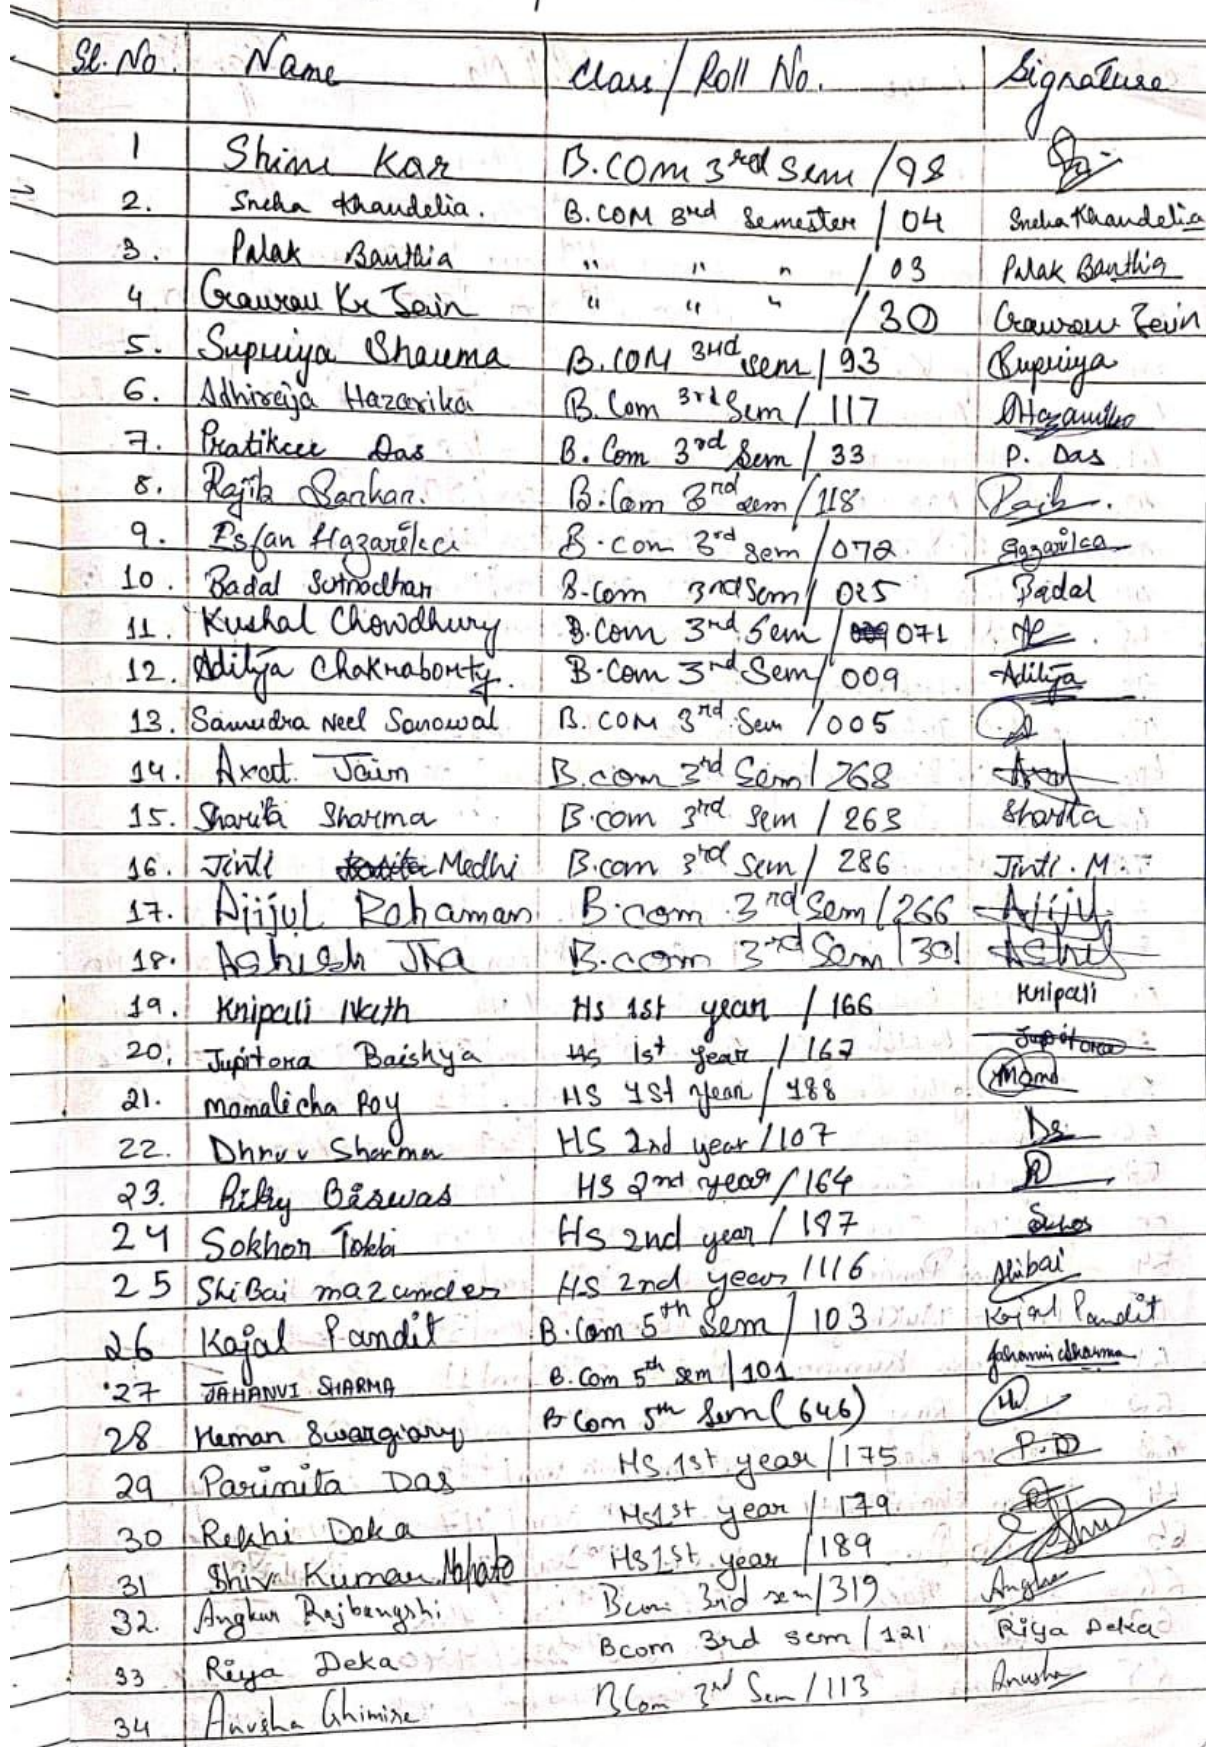 Sl. No. Name Class/Roll No. Signature
1 Shimi Kar B.COM 3rd Sem /98
2. Sneha Khandelia. B.COM 3rd Semester / 04 Sneha Khandelia
3. Palak Banthia " " " / 03 Palak Banthia
4. Gaurav Kr Jain " " " /30 Gaurav Jain
5. Supriya Sharma B.COM 3rd sem / 93 Supriya
6. Adhiraja Hazarika B.Com 3rd Sem / 117 AHazarika
7. Das B. Com 3rd Sem / 33 P. Das
8. Rajib Sarkar. B.Com 3rd sem / 118 Rajib.
9. Isfan Hazarika B.com 3rd Sem / 072 Hazarika
10. Badal Sutradhar B.Com 3rd Sem / 025 Badal
11. Kushal Chowdhury B.Com 3rd Sem / 071
12. Aditya Chakraborty. B.Com 3rd Sem / 009 Aditya
13. Samudra Neel Sonowal B.COM 3rd Sem / 005
14. Axat Jain B.com 3rd Sem / 268 Axat
15. Sharita Sharma B.com 3rd Sem / 263 Sharita
16. Jinti Medhi B.com 3rd Sem / 286 Jinti. M.
17. Ajijul Rohaman B.com 3rd Sem / 266 Ajijul
18. Ashish Jha B.com 3rd Sem / 301 Ashish
19. Knipali Nath Hs 1st year / 166 Knipali
20. Jupitora Baishya Hs 1st year / 167 Jupitora
21. Momalicha Roy HS 1st year / 188 Momo
22. Dhruv Sharma HS 2nd year / 107 Ds
23. Riky Biswas HS 2nd year / 164 R
24 Sokhon Tokbi Hs 2nd year / 187
25 Shibai mazumder HS 2nd year / 116 Shibai
26 Kajal Pandit B.Com 5th Sem / 103 Kajal Pandit
27 JAHANVI SHARMA B.Com 5th sem / 101 Jahanvi Sharma
28 Heman Swargiary B Com 5th Sem (646)
29 Parimita Das HS 1st year / 175 P.D
30 Rekhi Deka Hs 1st year / 179
31 Shiv Kumar Mahato HS 1st year / 189
32. Angkur Rajbangshi Bcom 3rd sem / 319 Angkur
33 Riya Deka Bcom 3rd sem / 121 Riya Deka
34 Anusha Ghimire BCom 3rd Sem / 113 Anusha